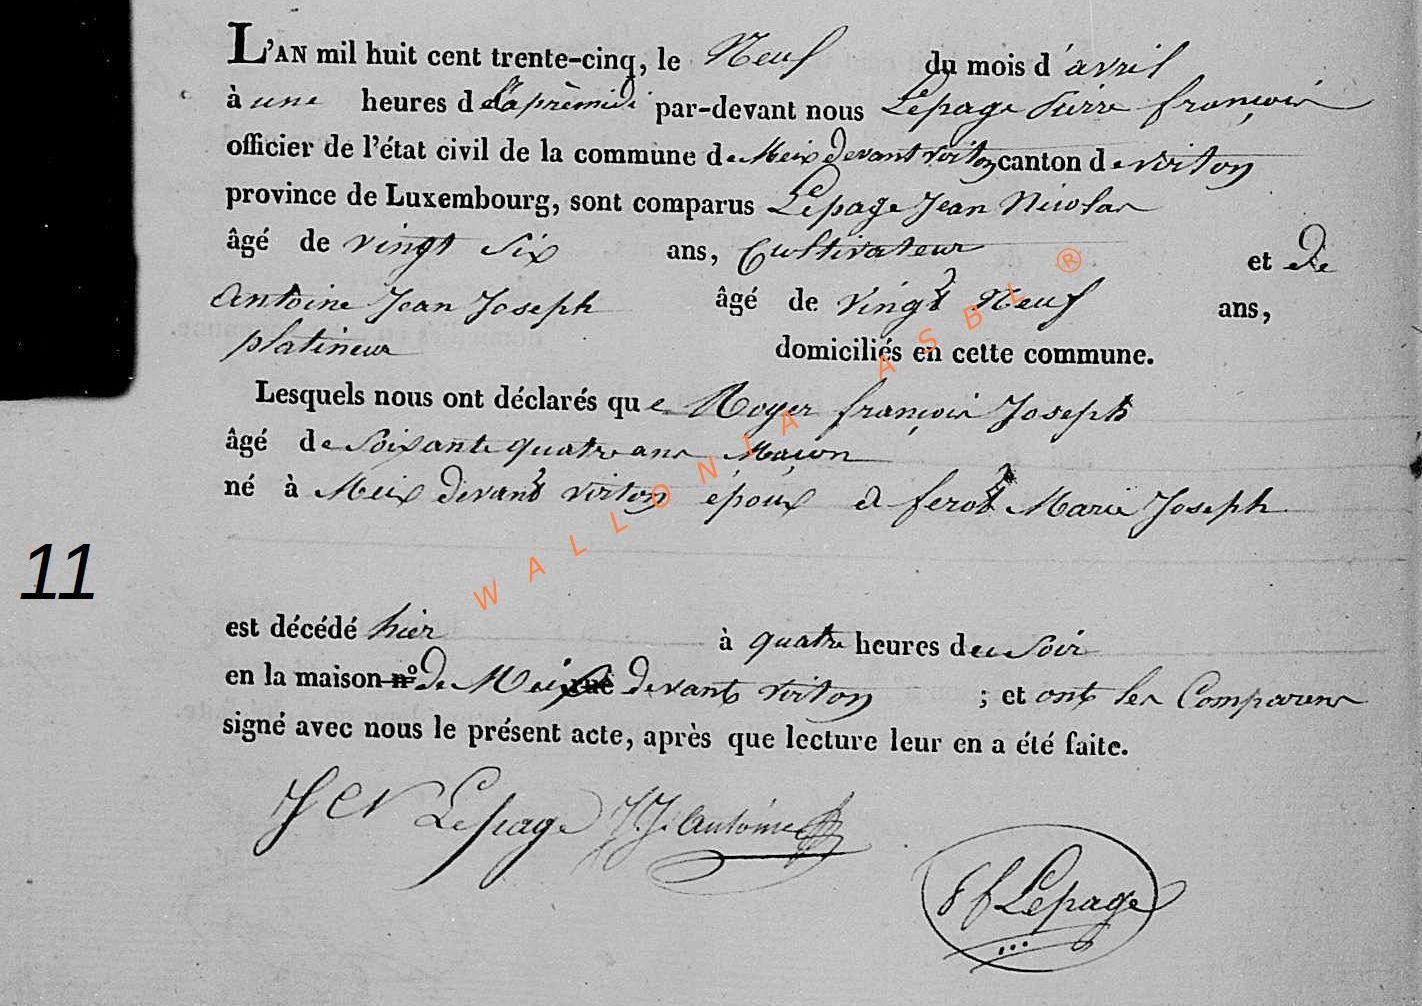 L'AN mil huit cent trente-cinq, le Neuf du mois d'avril
à une heures de l'aprèmidi par-devant nous Lepage Pierre françois
officier de l'état civil de la commune de Meix devant virton canton de virton
province de Luxembourg, sont comparus Lepage Jean Nicolas
âgé de vingt six ans, Cultivateur et De
Antoine Jean Joseph âgé de vingt Neuf ans,
platineur domiciliés en cette commune.
Lesquels nous ont déclarés que Royer françois Joseph
âgé de soixante quatre ans Maçon
né à Meix devant virton époux a ferot Marie Joseph
11
est décédé hier à quatre heures du soir
en la maison n° de Meix rue devant virton ; et ont les Comparens
signé avec nous le présent acte, après que lecture leur en a été faite.
Lepage J. J. Antoine
Lepage
WALLONIA ASBL ®